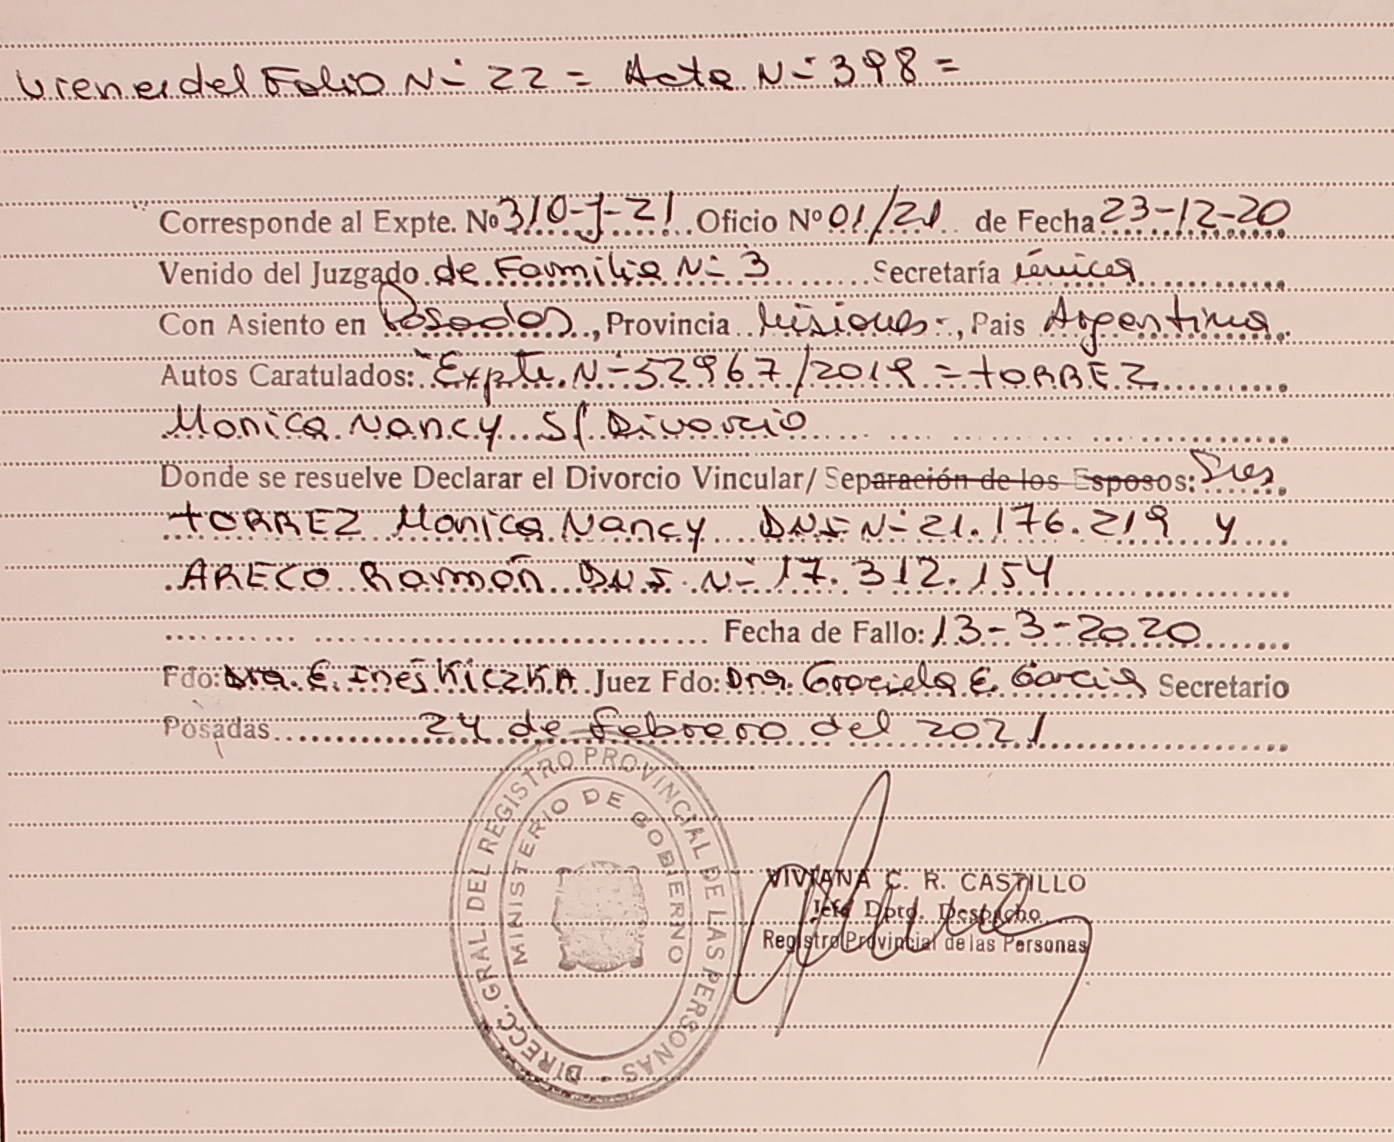 Viene del Folio N- 22 = Acta N- 398 =
Corresponde al Expte. Nº 310-J-21 Oficio Nº 01/21 de Fecha 23-12-20
Venido del Juzgado de Familia N- 3 Secretaría única
Con Asiento en Posadas, Provincia Misiones-, Pais Argentina.
Autos Caratulados: "Expte. N- 52967/2019 = TORREZ
Monica Nancy S/ Divorcio
Donde se resuelve Declarar el Divorcio Vincular/ Separación de los Esposos: Sres
TORREZ Monica Nancy DNI N- 21.176.219 y
ARECO Ramón DNI N- 17.312.154
Fecha de Fallo: 13-3-2020
Fdo: Dra. E. Inés KICZKA Juez Fdo: Dra. Graciela E. Garcia Secretario
Posadas 24 de febrero del 2021
DIRECC. GRAL. DEL REGISTRO PROVINCIAL DE LAS PERSONAS -
MINISTERIO DE GOBIERNO
VIVIANA C. R. CASTILLO
Jefe Dpto. Despacho
Registro Provincial de las Personas